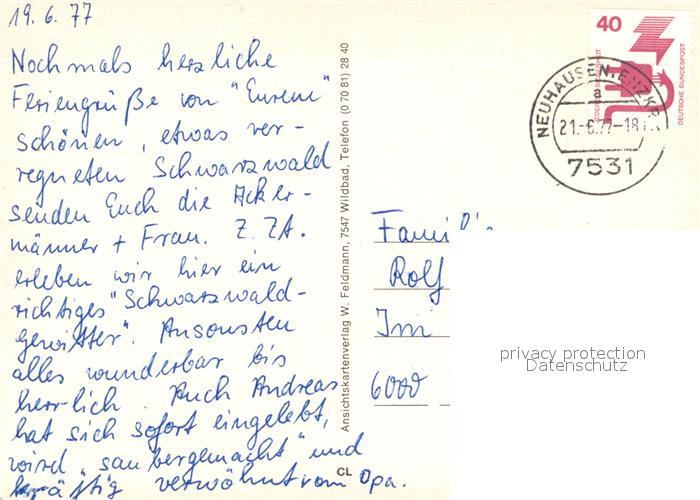 19.6.77
Nochmals herzliche
Feriengrüße von "Eurem"
schönen, etwas ver-
regneten Schwarzwald
senden Euch die Acker-
männer + Frau. Z. Zt.
erleben wir hier ein
richtiges "Schwarzwald-
gewitter". Ansonsten
alles wunderbar bis
herr-lich. Auch Andreas
hat sich sofort eingelebt,
wird "saubergemacht" und
kräftig verwöhnt vom Opa.
Ansichtskartenverlag W. Feldmann, 7547 Wildbad, Telefon (0 70 81) 28 40
CL
40
JEDERZEIT SICHERHEIT
DEUTSCHE BUNDESPOST
NEUHAUSEN, ENZKR
a
21.-6.77-18
7531
Fami
Rolf
Im
6000
privacy protection
Datenschutz